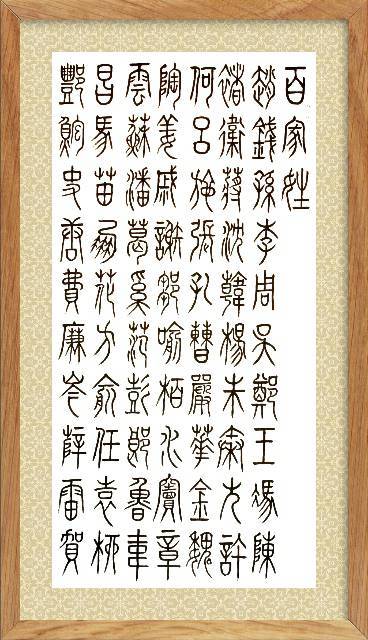 百家姓
趙錢孫李周吳鄭王馮陳
褚衛蔣沈韓楊朱秦尤許
何呂施張孔曹嚴華金魏
陶姜戚謝鄒喻柏水竇章
雲蘇潘葛奚范彭郎魯韋
昌馬苗鳳花方俞任袁柳
酆鮑史唐費廉岑薛雷賀